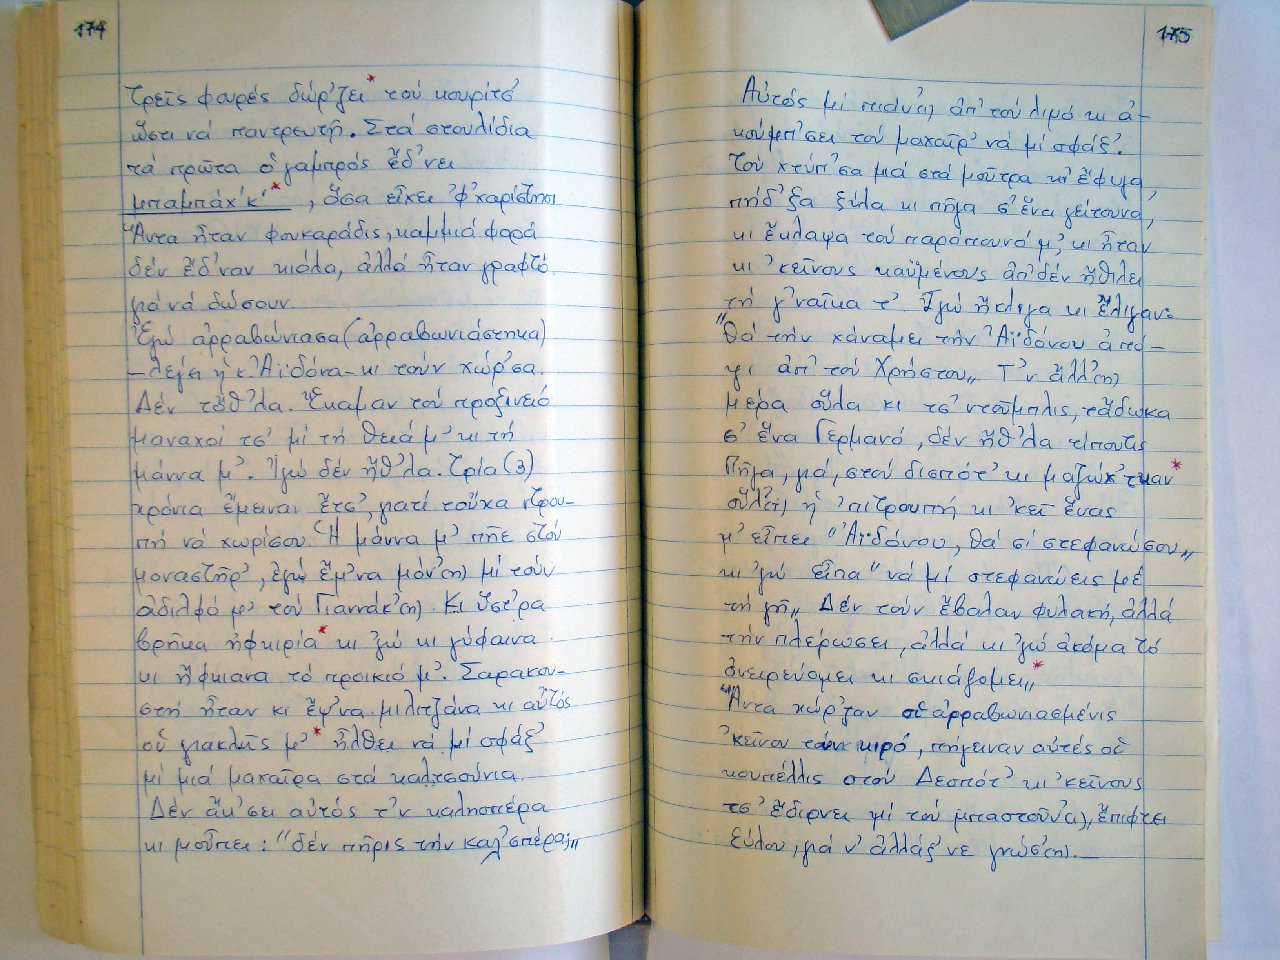 174
τρεῖς φουρές δώρ'ζει * τού κουρίτσ'
ὥστι νά παντρευτῇ. Στά στουλίδια
τά πρῶτα οὗ γαμπρός ἔδ'νει
μπαμπάχ'κ' * , ὅσα εἶχει 'φ'χαρίστησι
Ἄντα ἦταν φουκαράδις, καμμιά φαρά
δέν ἔδ'ναν κιόλα, ἀλλά ἦταν γραφτό
γιά νά δώσουν
Ἐγώ ἀρραβώνιασα (ἀρραβωνιάστηκα)
— λέγει ἡ κ. Ἀϊδόνα — κι τούν χώρ'σα.
Δέν τὄθ'λα. Ἔκαμαν τού προξινειό
μαναχοί τσ' μί τή θειά μ' κι τή
μάννα μ'. Ἰγώ δέν ἤθ'λα. Τρία (3)
χρόνια ἔμειναι ἔτσ', γιατί τοὖχα ντρου-
πή νά χωρίσου. Ἡ μάννα μ' πῆε στού
μοναστῆρ', ἐγώ ἔμ'να μόν'(η) μί τούν
ἀδιλφό μ' τού Γιαννάκ'(η). Κι ὕστερα
βρῆκα ἠφκιρία * κι 'γώ κι γύφαινα
κι ἤφκιανα τό προικιό μ'. Σαρακου-
στή ἦταν κι ἔψ'να μιλιτζάνα κι αὐτός
οὗ γιακλῆς μ' * ἦλθει νά μί σφάξ'
μί μιά μαχαῖρα στά καλτσούνια.
Δέν ἄκ'σει αὐτός τ'ν καλησπέρα
κι μοὖπει: "δέν πῆρις τήν καλ'σπέρα;"
175
Αὐτός μί πιάν'(ει) ἀπ' τού λιμό κι ἀ-
κούμπ'σει τού μαχαῖρ' νά μί σφάξ'.
Τού χτύπ'σα μιά στά μοῦτρα κι ἔφυγα,
πήδ'ξα ξύλα κι πῆγα σ' ἕνα γείτουνα,
κι ἔκλαψα τού παράπουνό μ', κι ἦταν
κι 'κεῖνους καϋμένους ἀπ' δέν ἤθιλει
τή γ'ναῖκα τ'. Ἰγώ ἤκλιγα κι ἔλιγαν:
"Θά τήν χάναμει τήν Ἀϊδόνου ἀπό-
ψι ἀπ' τού Χρήστου". Τ'ν ἄλλ'(η)
μέρα οὗλα κι τσ' ντοῦμπλις, τἄδωκα
σ' ἕνα Γερμανό, δέν ἤθ'λα τίπουτις
Πῆγα, γιά, στού δισπότ' κι μαζώχ'τκαν *
οὕλ'(η) ἡ 'πιτρουπή κι 'κεῖ ἕνας
μ' εἶπει "Ἀϊδόνου, θά σί στεφανώσου"
κι 'γώ εἶπα "νά μί στεφανώεις μέ
τή γῆ". Δέν τούν ἔβαλαν φυλακή, ἀλλά
τήν πλέρωσει, ἀλλά κι 'γώ ἀκόμα τό
ὀνειρεύομει κι σκιάζομει" *
"Ἄντα χώρ'ζαν οἱ ἀρραβωνιασμένις
'κεῖνον τόν κιρό, πήγειναν αὐτές οἱ
κουπέλλις στού Δεσπότ' κι 'κεῖνους
τσ' ἔδιρνει μί τού μπαστοῦν'(ι), ἔπιφτει
ξύλου, γιά ν' ἀλλάξ'νε γνώσ'(η).—